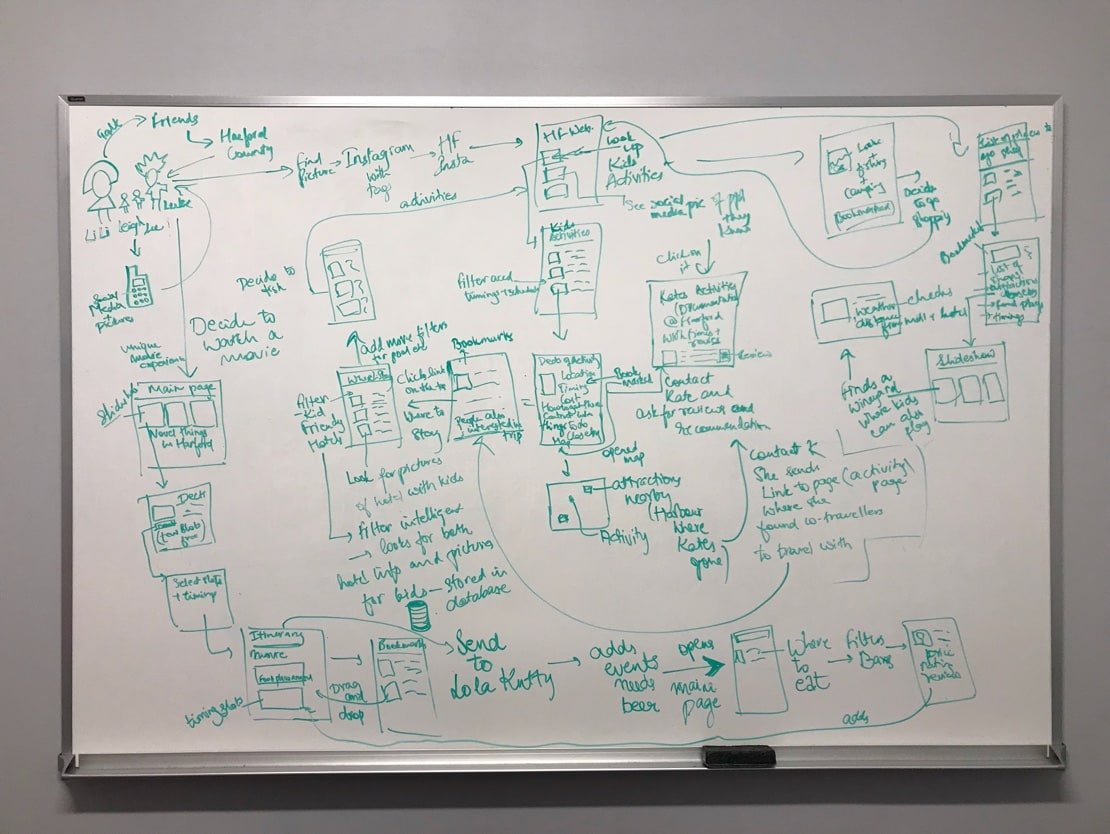 Friends
Harford
County
Find
Picture
Instagram
with
tags
HF
Insta
HF Web.
Look
up
Kids
Activities
activities
See social
media pic of ppl
they
know
click on
it
Look
fishing
+
camping
Bookmarked
Decide
to go
shopping
List of places to
go shop
Bookmarks
list of
shops
attraction
Food places
+ timings
LiLi
Luke
Social
Media
+
Pictures
unique
movie
experience
Decide to
Watch a
movie
Decide to
fish
Kids
Activities
filter acc
timing + schedule
Kate Activities
@ Harford
with times +
Reviews
Weather
distance
from
hotel
checks
Slideshow
Finds a
Wineyard
where kids
can also
play
add more filters
for pool etc
Bookmarks
Click link
on the
Where to
Stay
People also
interested in
trip
Desc of Activity
Location
Timing
Cost
Things To do
Close by
Map
Book
marked
Contact
Kate and
ask for reviews and
recommendation
Slideshow
Main page
Novel things
in Harford
filter
-Kid
Friendly
Hotels
Look for pictures
of hotel with kids
filter intelligent
→ looks for both
hotel info and pictures
for kids — stored in
database
opened
map
attractions
nearby
(Harbour
where
Kates
gone)
Activity
contact K
She sends
Link to page (activity)
page
where she
found co-travellers
to travel with
Desc
Select slots
+ timing
Itinerary
Movie
timing slots
Drag
and
drop
Bookmark
Send
to
Lola Kutty
adds
events
needs
beer
opens
main
page
where
to
eat
filters
→ Bars
pric
review
adds